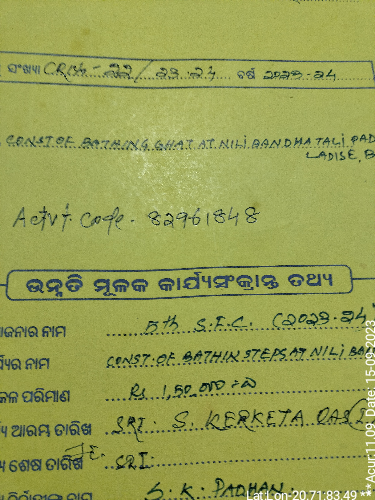 ସଂଖ୍ୟା CRM - 22/23-24 ବର୍ଷ 2023-24
CONST OF BATHING GHAT AT NILI BANDHA TALI PAD
LADISE, B
Actvt. Code - 82961848
ଉନ୍ନତି ମୂଳକ କାର୍ଯ୍ୟସଂକ୍ରାନ୍ତ ତଥ୍ୟ
ନାମ 5th S.F.C. (2023-24
ନାମ CONST. OF BATHIN STEPS AT NILI BA
ପରିମାଣ Rs 1,50,000=00
ଆରମ୍ଭ ତାରିଖ SRI- S. KERKETA
ଶେଷ ତାରିଖ SRI-
ନାମ S. K. PADHAN.
Lat Lon- 20.71:83.49 ** Acur:11.09, Date: 15-09-2023